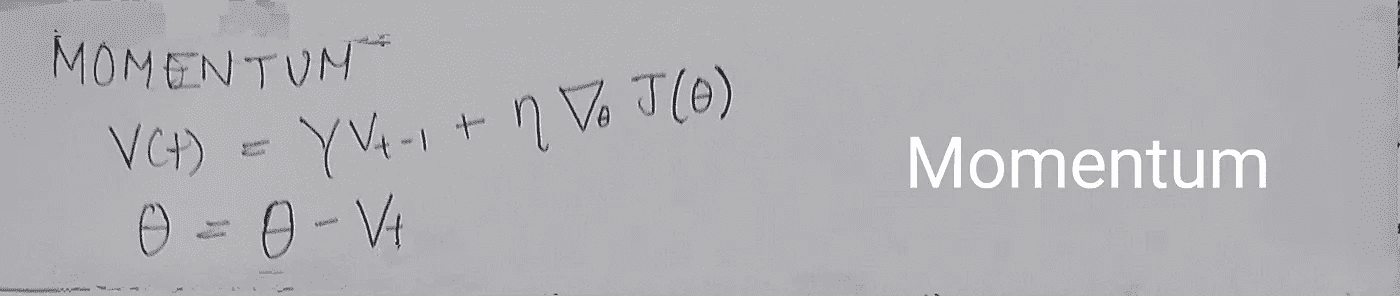 MOMENTUM
V(t) = γV_{t-1} + η ∇_θ J(θ)
θ = θ - V_t
Momentum